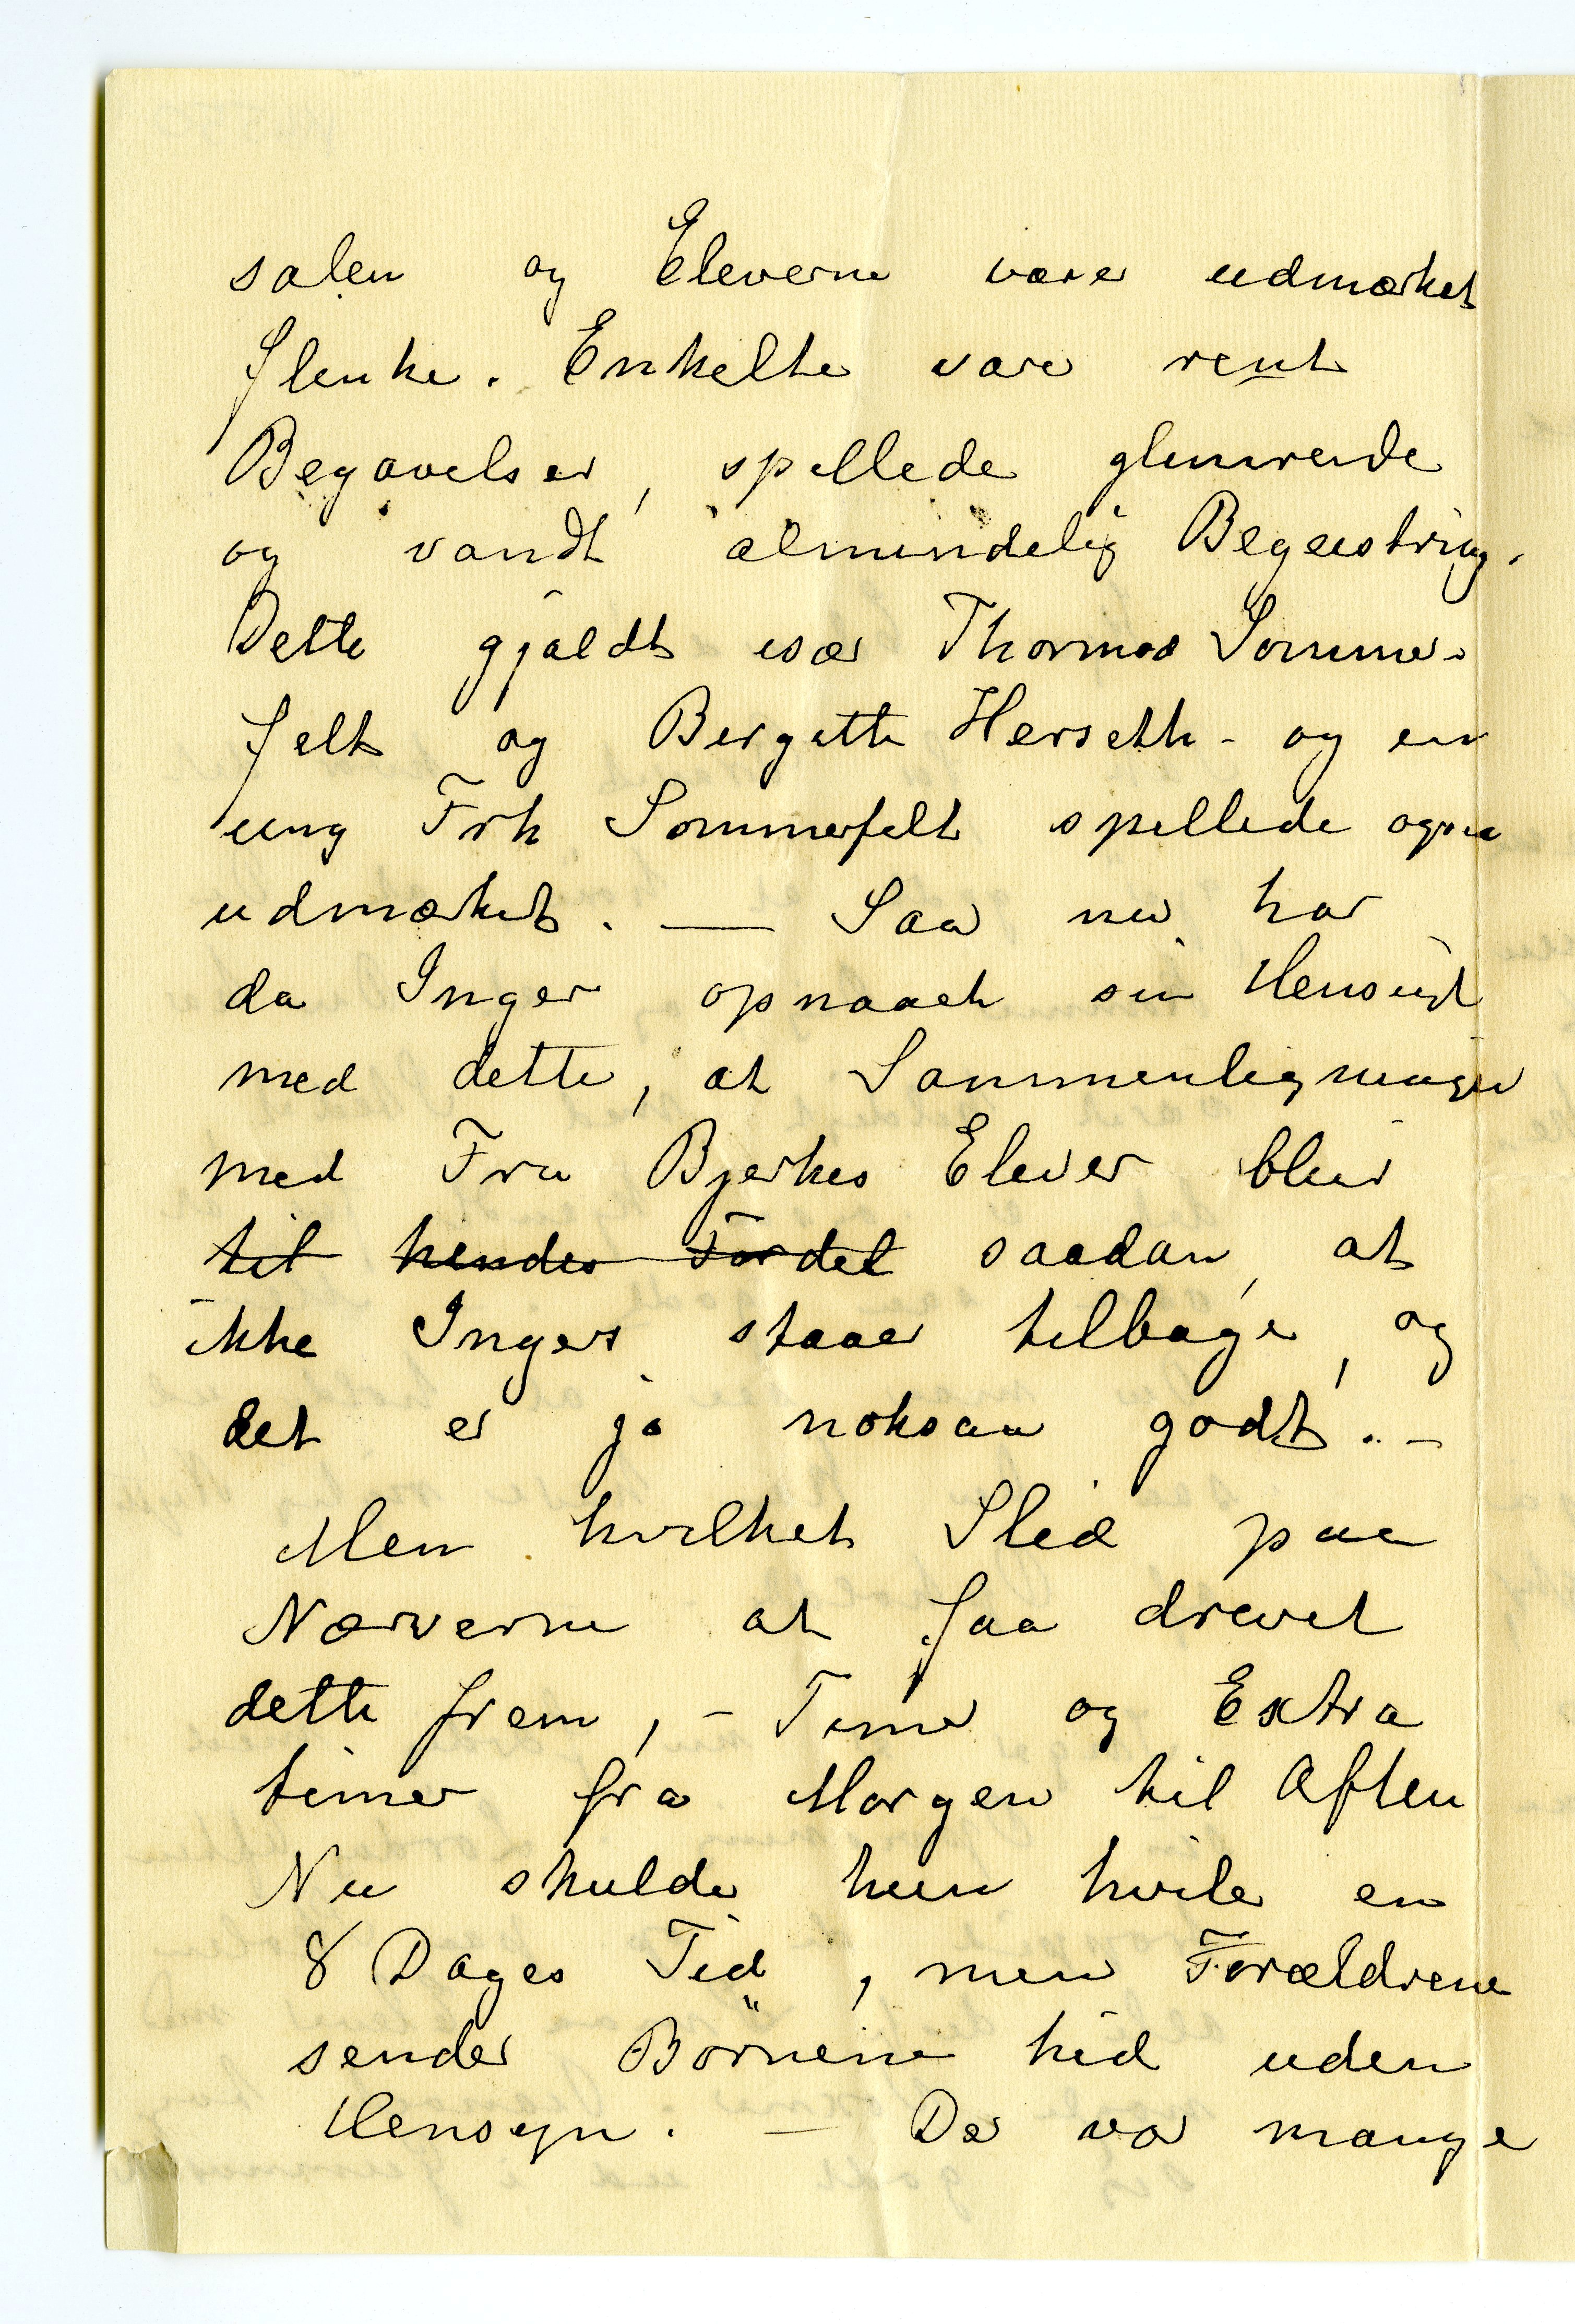 salen og Eleverne vare udmærket
flenke. Enkelte vare rent
Begavelser, spillede glimrende
og vandt almindelig Begeistring.
Dette gjaldt især Thomas Somme-
felt og Birgitte Herseth - og en
ung Frk Sommerfelt spillede ogsaa
udmærket. — Saa nu har
da Inger opnaaet sin Hensigt
med dette, at Sammenligningen
med Fru Bjerkes Elever blier
~~til hendes Fordel~~ saadan, at
ikke Ingers staaer tilbage, og
det er ja noksaa godt. -
Men hvilket Slid paa
Nærverne at faa drevet
dette frem, - Timer og Extra
timer fra Morgen til Aften
Nu skulde hun hvile en
8 Dages Tid, men Forældrene
sender Börnene hid uden
Hensyn. — Der var mange